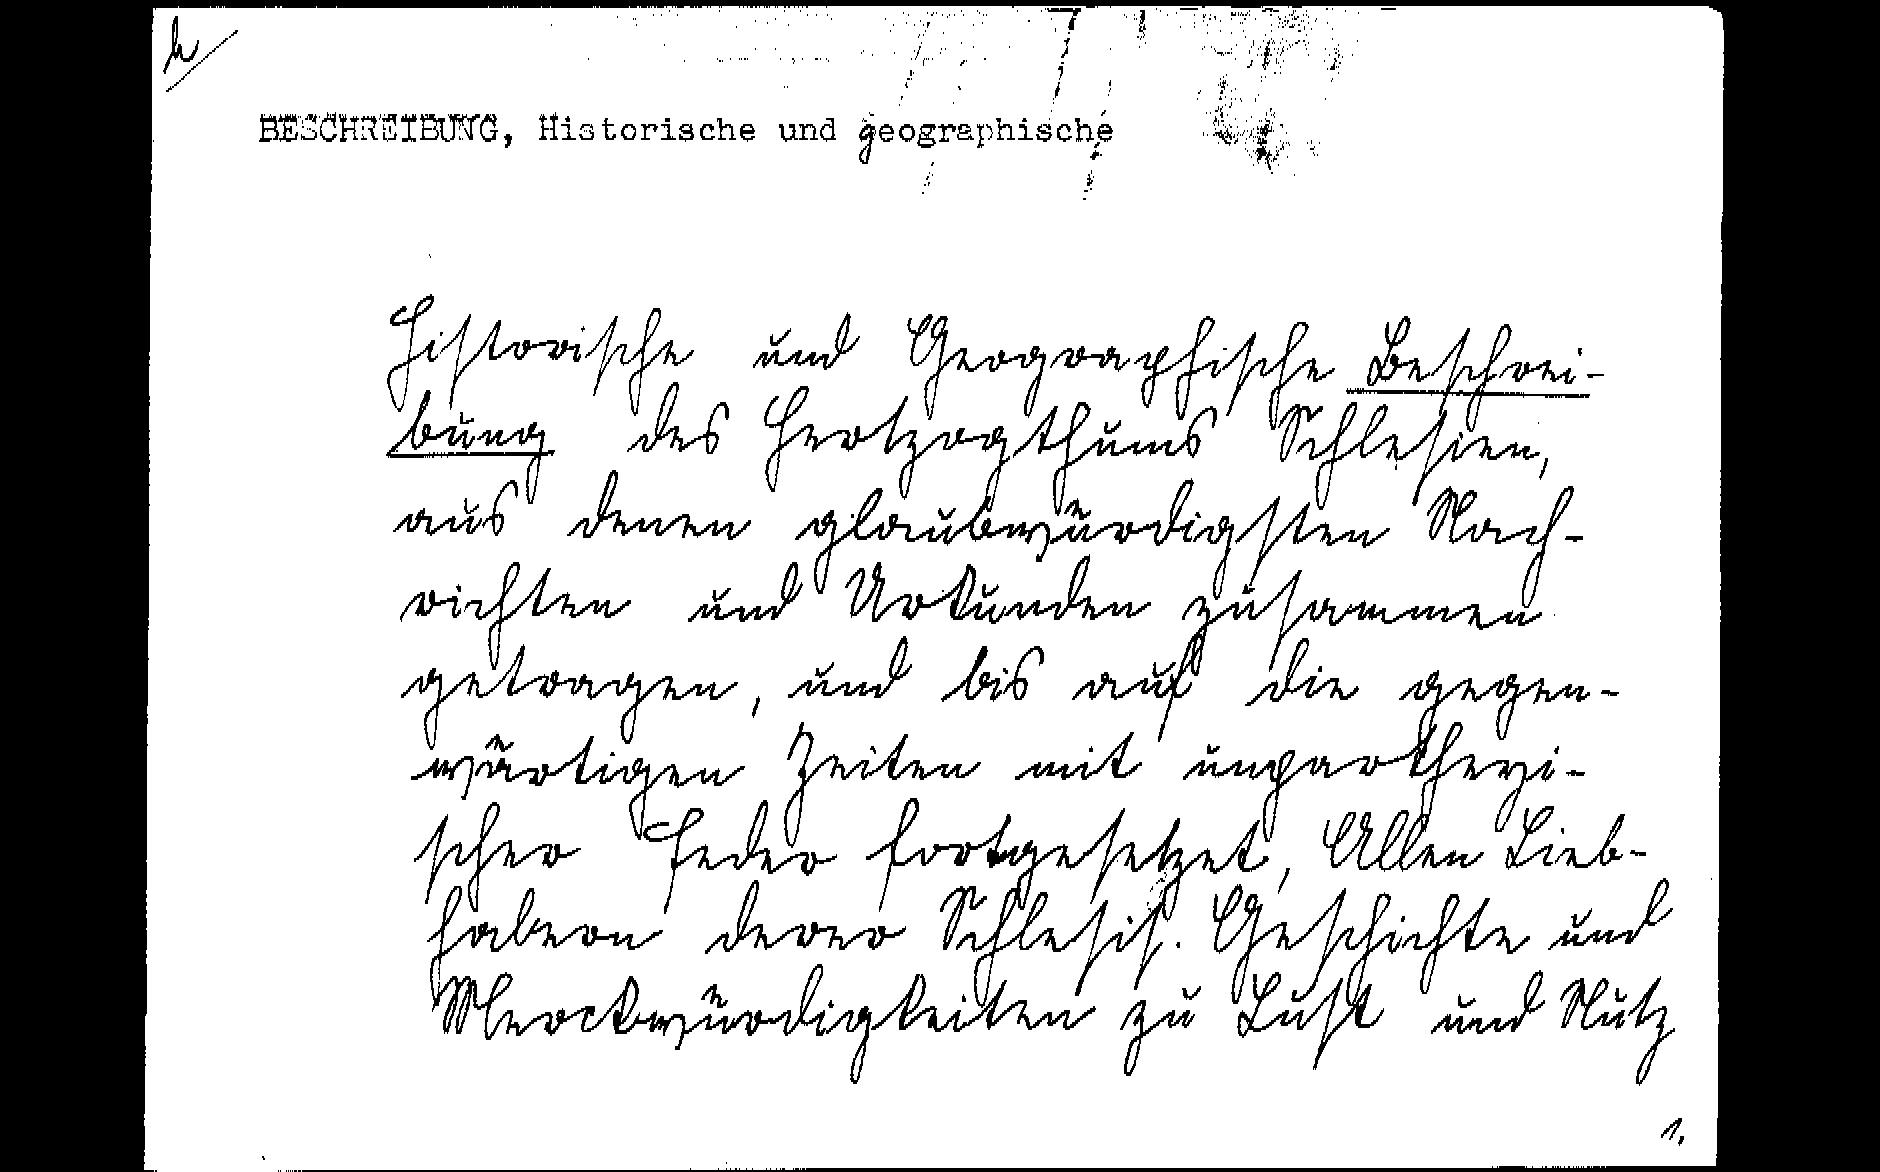 h
BESCHREIBUNG, Historische und geographische
Historische und Geographische Beschrei-
bung des Hertzogthums Schlesien,
aus denen glaubwürdigsten Nach-
richten und Urkunden zusammen
getragen, und bis auf die gegen-
wärtigen Zeiten mit unpartheyi-
scher Feder fortgesetzet, Allen Lieb-
habern derer Schlesis. Geschichte und
Merckwürdigkeiten zu Lust und Nutz
1.